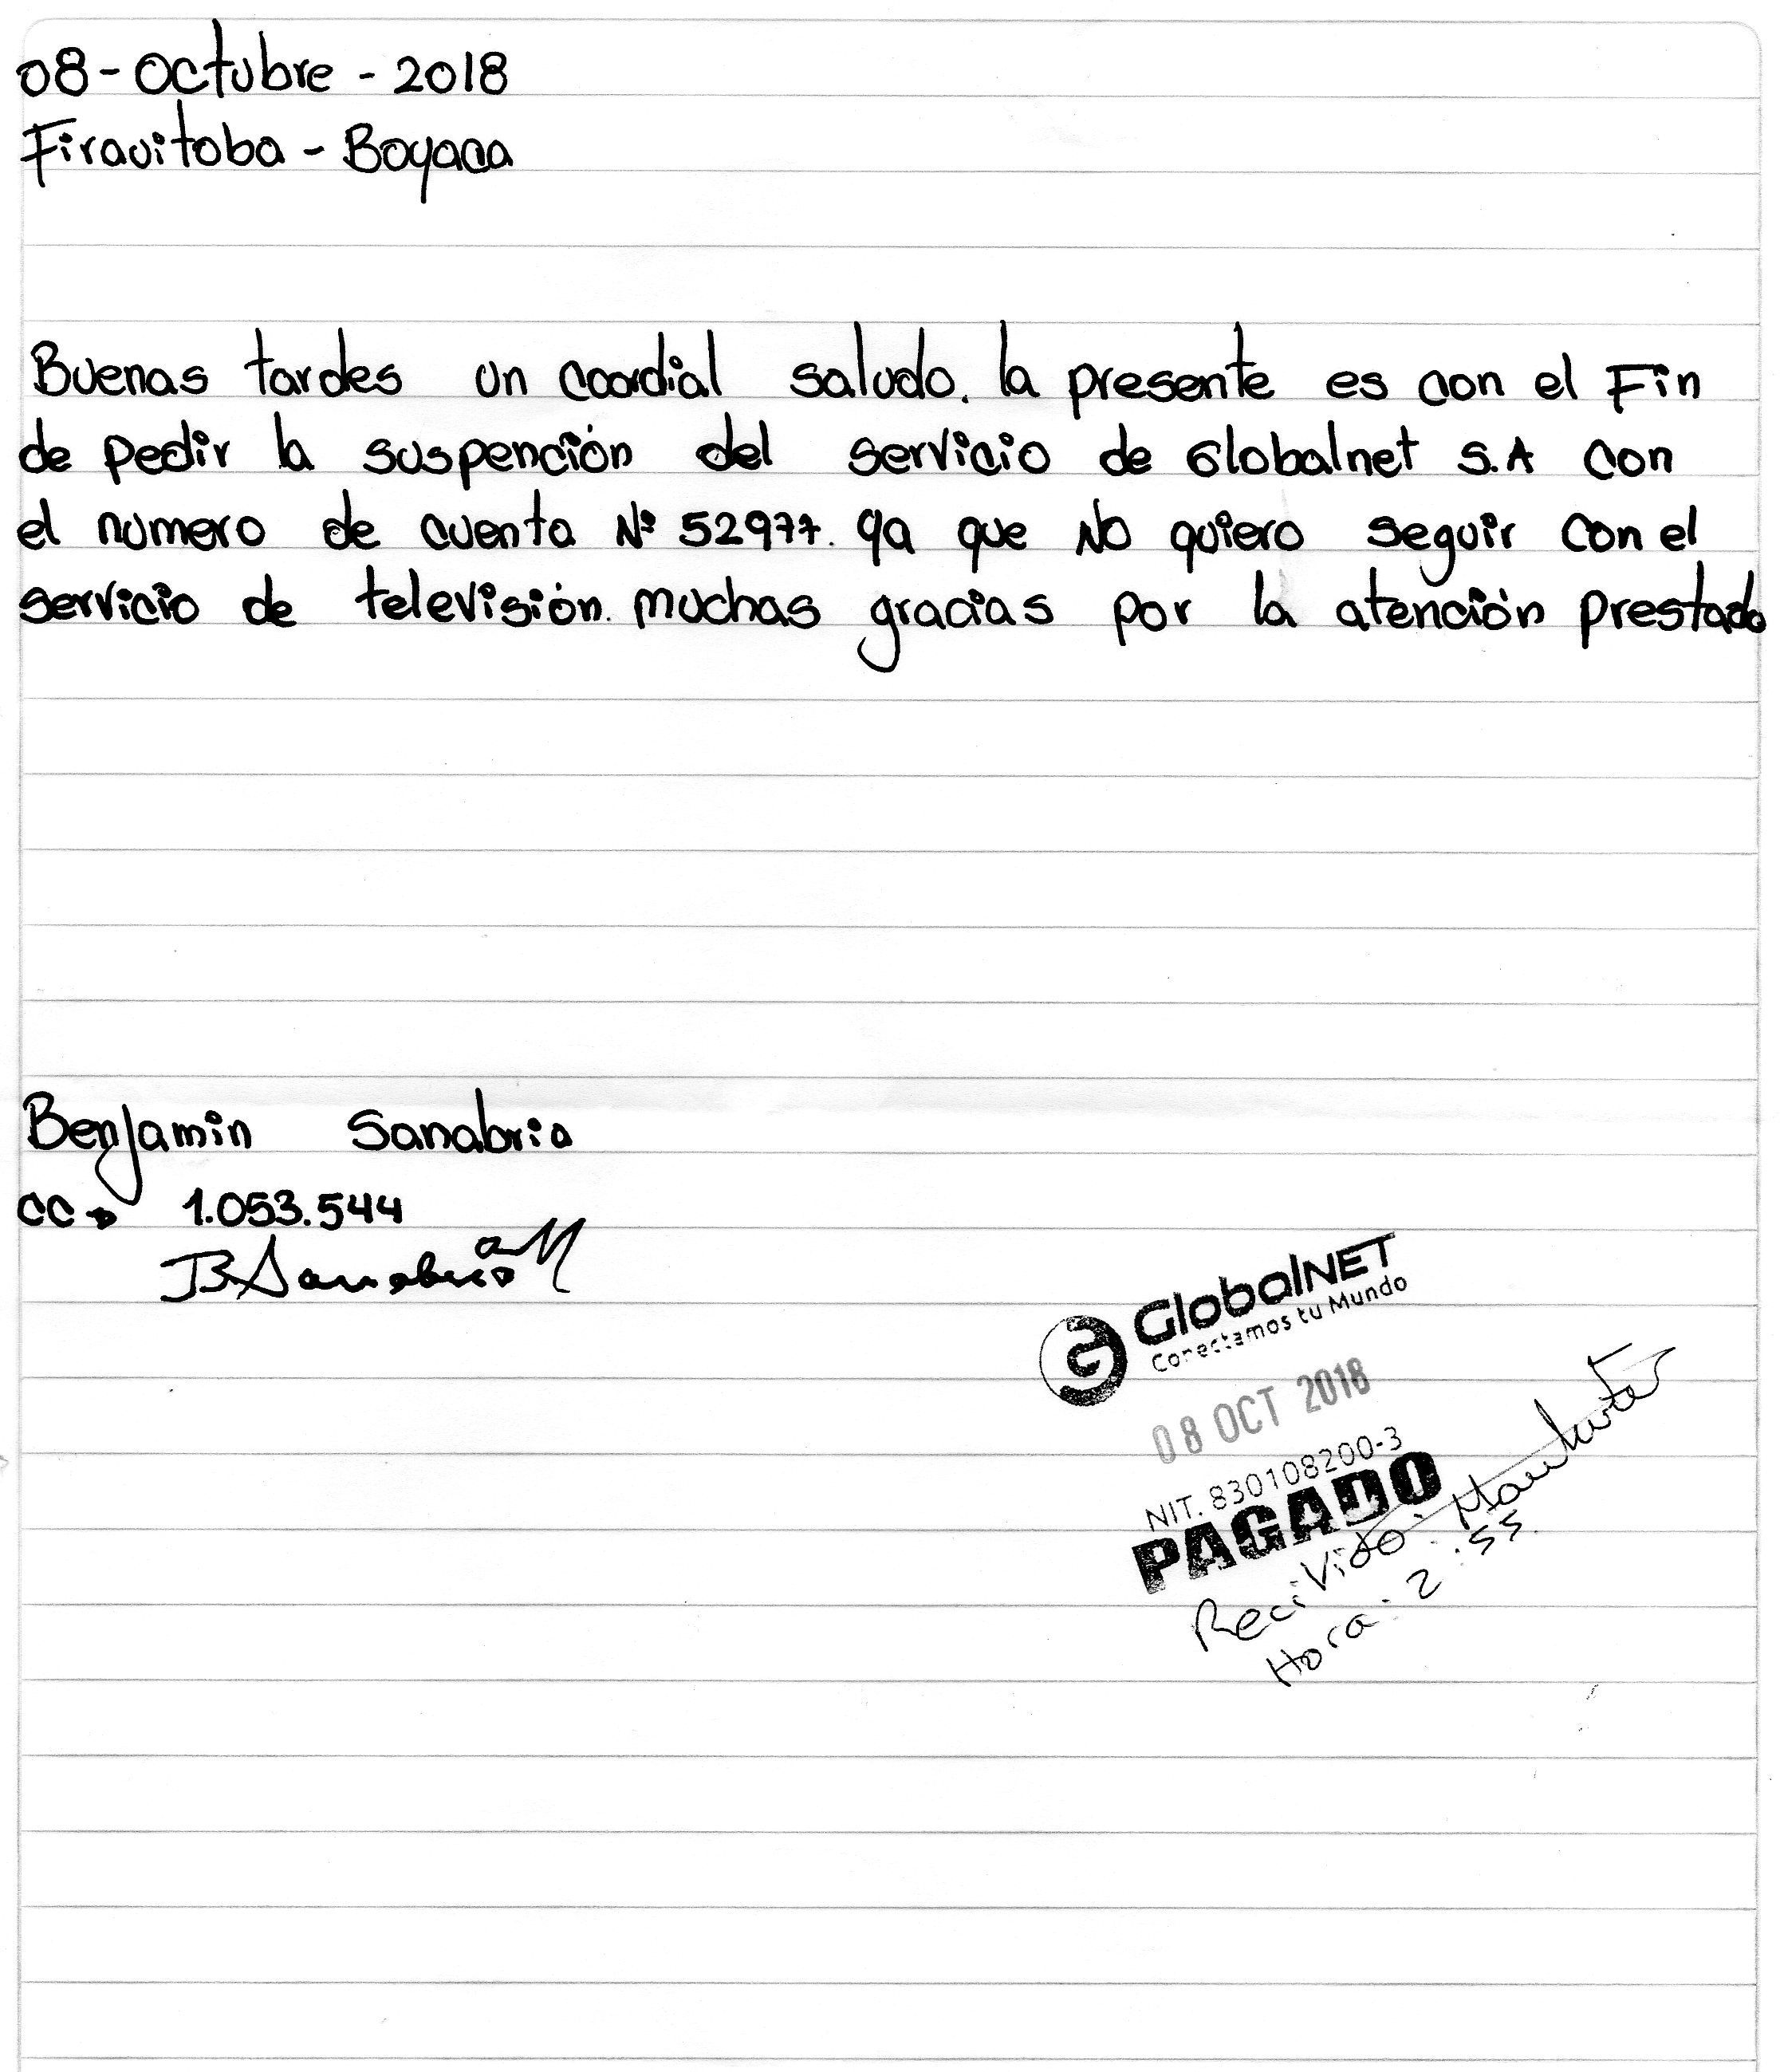 08 - Octubre - 2018
Firavitoba - Boyaca
Buenas tardes un coordial saludo. la presente es con el Fin
de pedir la suspención del servicio de Globalnet S.A con
el numero de cuenta Nº 52977. ya que No quiero seguir con el
servicio de televisión. muchas gracias por la atención prestada
Benjamin Sanabria
CC → 1.053.544
BSanabria M
GlobalNET
Conectamos tu Mundo
08 OCT 2018
NIT. 830108200-3
PAGADO
Recivido:
Hora: 2:55.